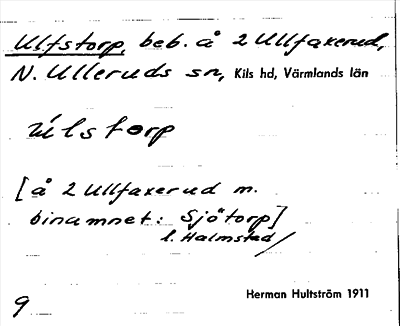 Ulfstorp, beb. å 2 Ullfaxerud,
N. Ulleruds sn, Kils hd, Värmlands län
úlstorp
[å 2 Ullfaxerud m.
binamnet: Sjötorp]
l. Halmstad/
Herman Hultström 1911
9